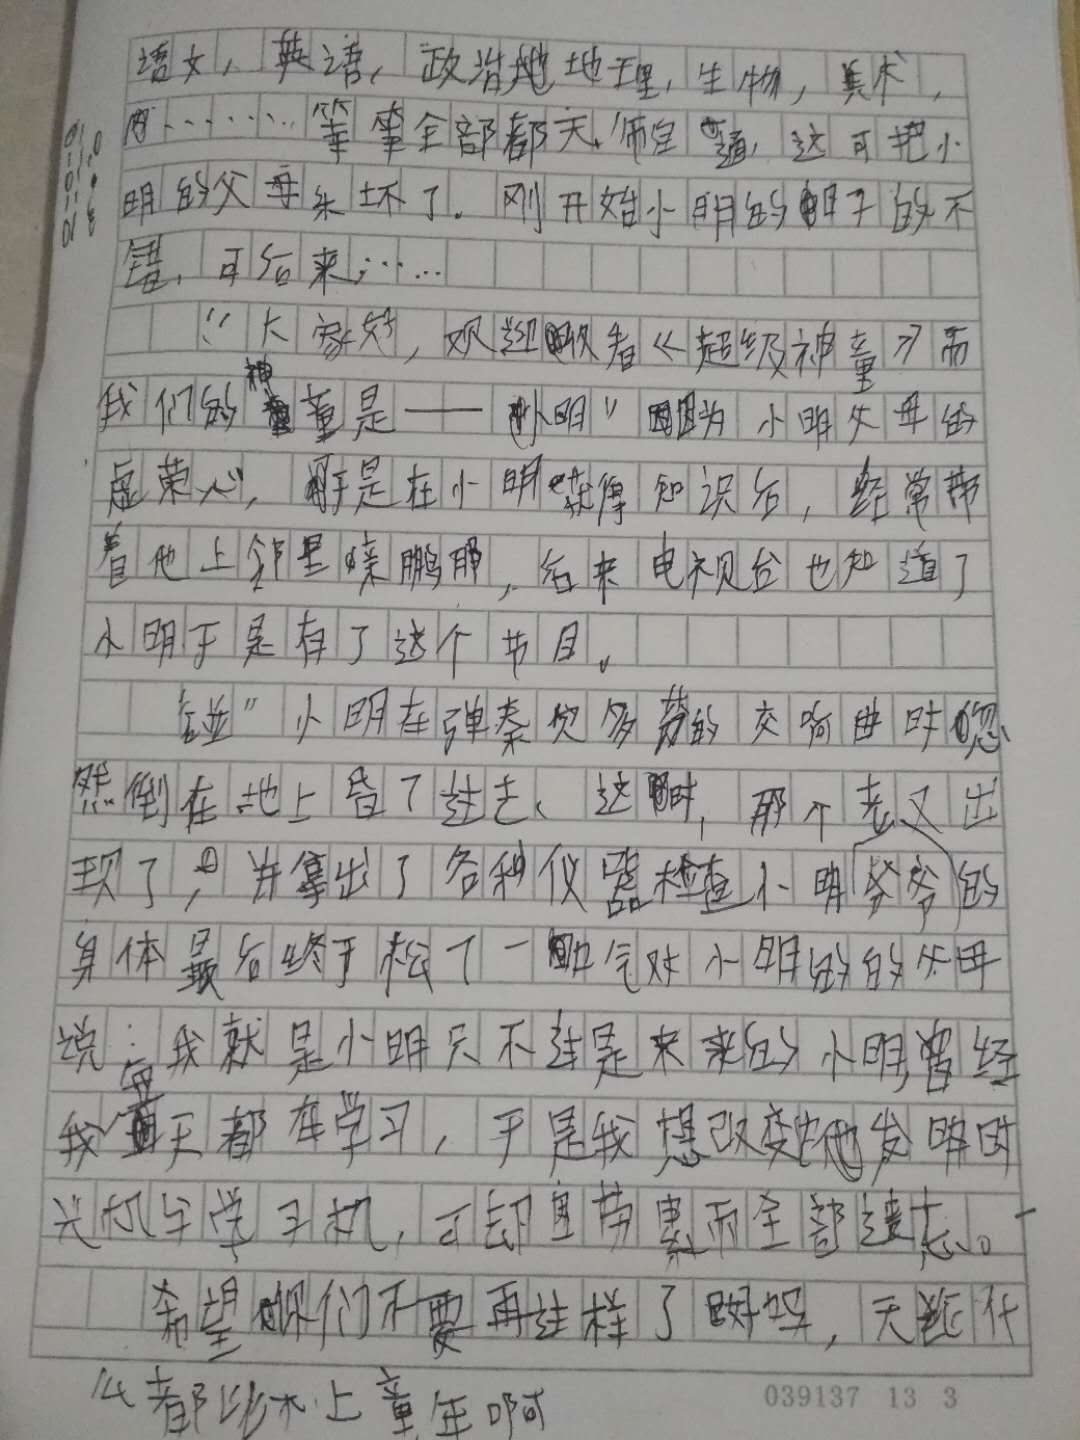 语文，英语，政治地理，生物，美术，
………等等全部都天师自通，这可把小
明的父母乐坏了。刚开始小明的日子的不
错，可后来……
“大家好，欢迎收看《超级神童》而
我们的神童是——小明”因为小明父母的
虚荣心，于是在小明获得知识后，经常带
着他上邻里亲朋那，后来电视台也知道了
小明于是有了这个节目。
碰”小明在弹奏贝多芬的交响曲时忽
然倒在地上昏了过去、这时，那个老爷爷又出
现了，并拿出了各种仪器检查小明的
身体最后终于松了一口气对小明的的父母
说：我就是小明只不过是未来的小明，曾经
我每天都在学习，于是我想改变他发明时
光机与学习机，可却因劳累而全部遗忘。
希望你们不要再这样了好吗，天什
么都比不上童年啊
039137 13 3